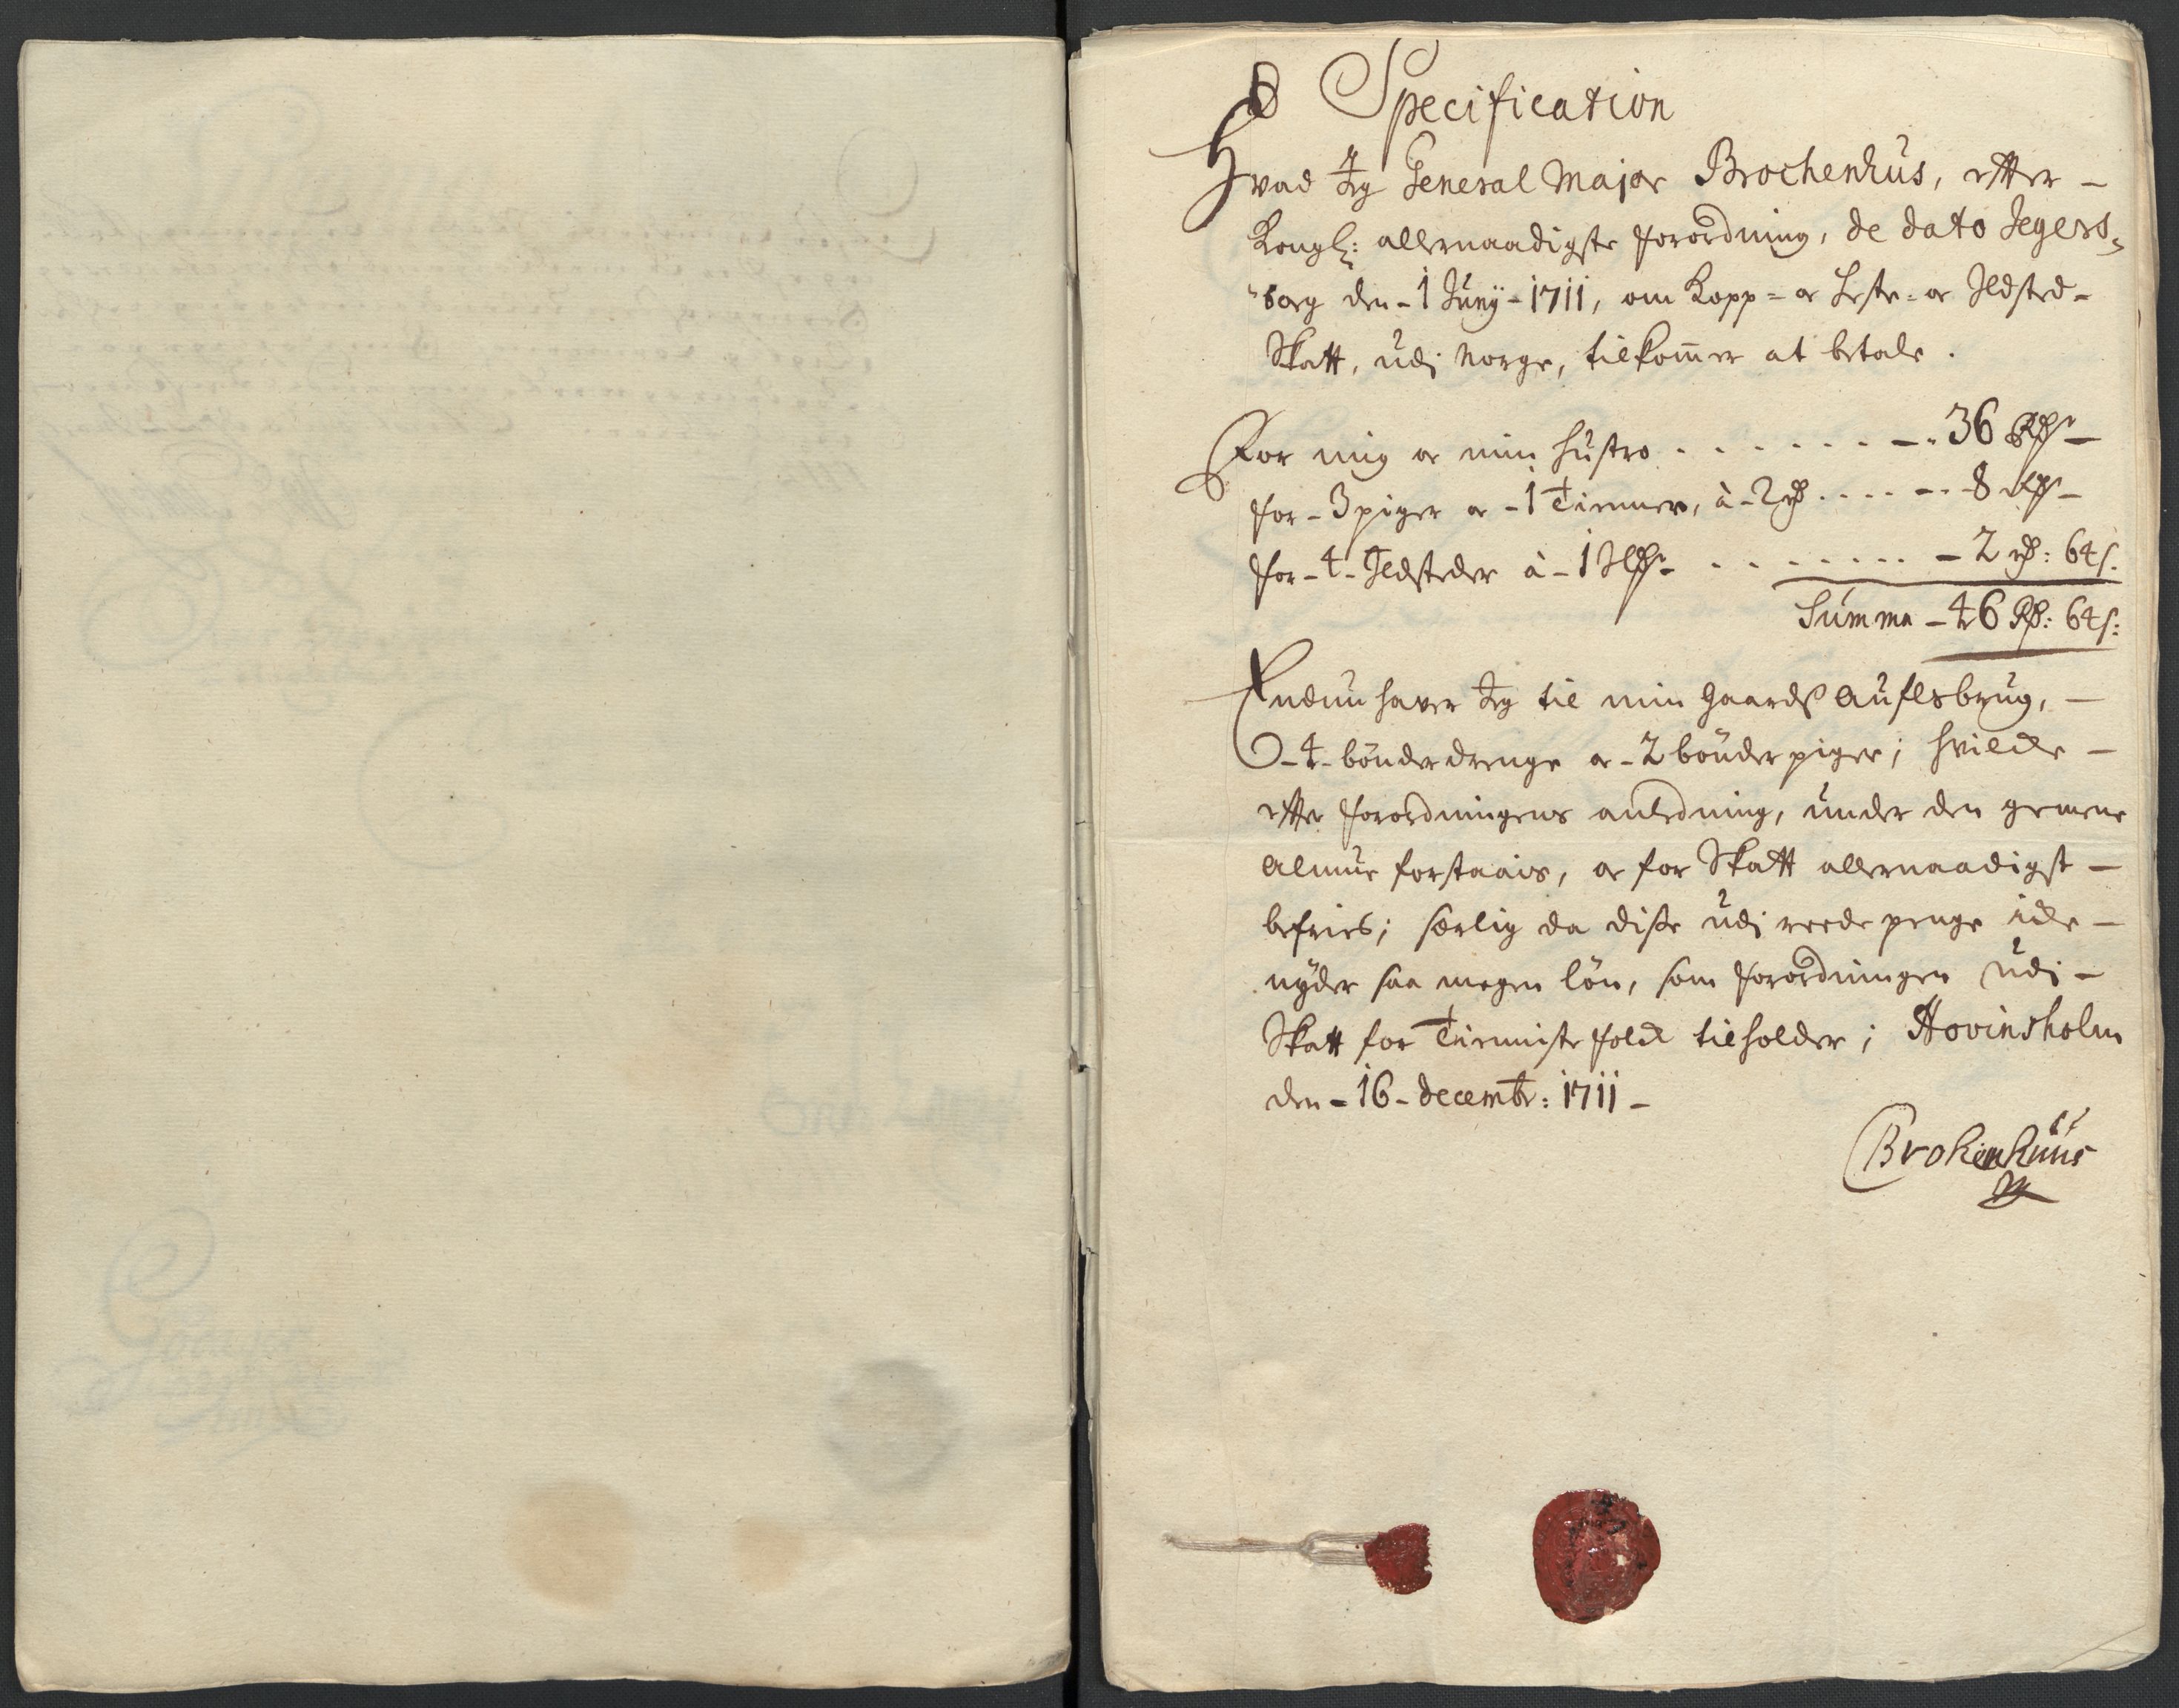 D Specification
Hvad Jeg General Major Brochenhus, effter
Kongl: allernaadigste forordning, de dato Jegers
borg den 1 Junÿ 1711, om Kopp= oc Heste= oc Ildsted
Skatt, udi Norge, tilkom̅er at betale.
For mig oc min Hustro - - - - - - 36 Rdr
for - 3 piger oc - 1 Tienner, à - 2 rd - - - - 8 Rdr
for - 4 - Ildsteder à - 1 Rdr - - - - - - - 2 rd: 64 s.
Summa - 46 Rd: 64 s:
Endnu haver Jeg til min gaards auflsbrug,
- 4 - bönderdrenge oc - 2 bönderpiger; hvilcke
effter forordningens anledning, under den gemene
Almue forstaais, oc for Skatt allernaadigst
befries; særlig da disse udi reede penge icke
nÿder saa megen lön, som forordningen udi
Skatt for Tienniste folck tilholder; Hovinsholm
den - 16 - decembr: 1711 -
Brokenhuus